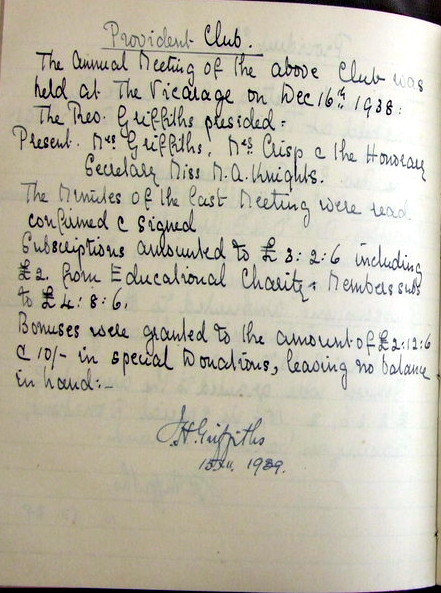 Provident Club.
The Annual Meeting of the above Club was
held at The Vicarage on Dec 16th 1938:
The Rev. Griffiths presided:
Present. Mrs Griffiths, Mrs Crisp & the Honorary
Secretary Miss M. A. Knights.
The Minutes of the last Meeting were read
confirmed & signed
Subscriptions amounted to £3:2:6 including
£2. from Educational Charity & Members subs
to £4:8:6.
Bonuses were granted to the amount of £2:12:6
& 10/- in special Donations, leaving no balance
in hand:-
Griffiths
1939.